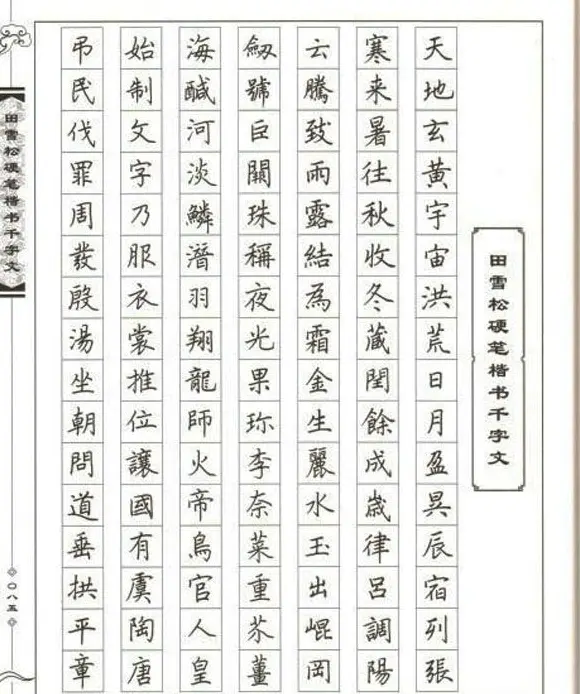 田雪松硬笔楷书千字文
天地玄黃宇宙洪荒日月盈昃辰宿列張
寒来暑往秋收冬藏閏餘成歳律吕調陽
云騰致雨露結為霜金生麗水玉出崐岡
劔號巨闕珠稱夜光果珎李奈菜重芥薑
海醎河淡鱗潛羽翔龍師火帝鳥官人皇
始制文字乃服衣裳推位讓國有虞陶唐
弔民伐罪周發殷湯坐朝問道垂拱平章
田雪松硬笔楷书千字文
〇八五